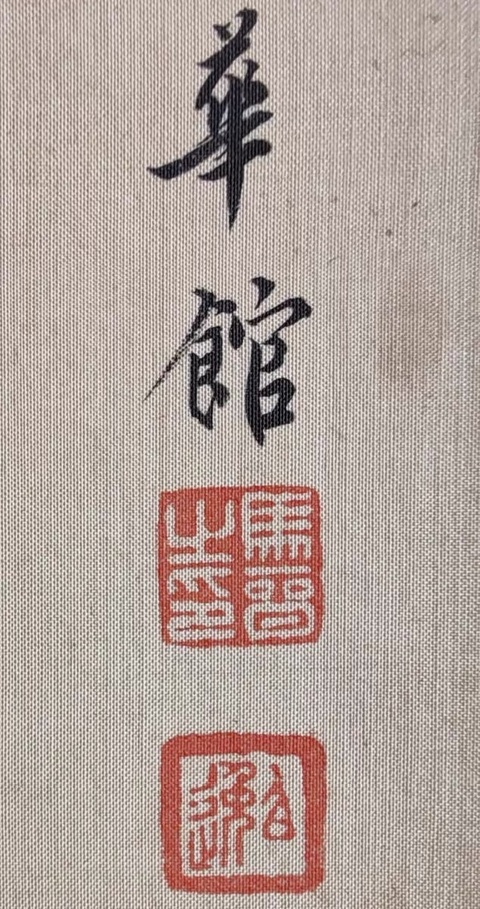 華
館
馬晉之印